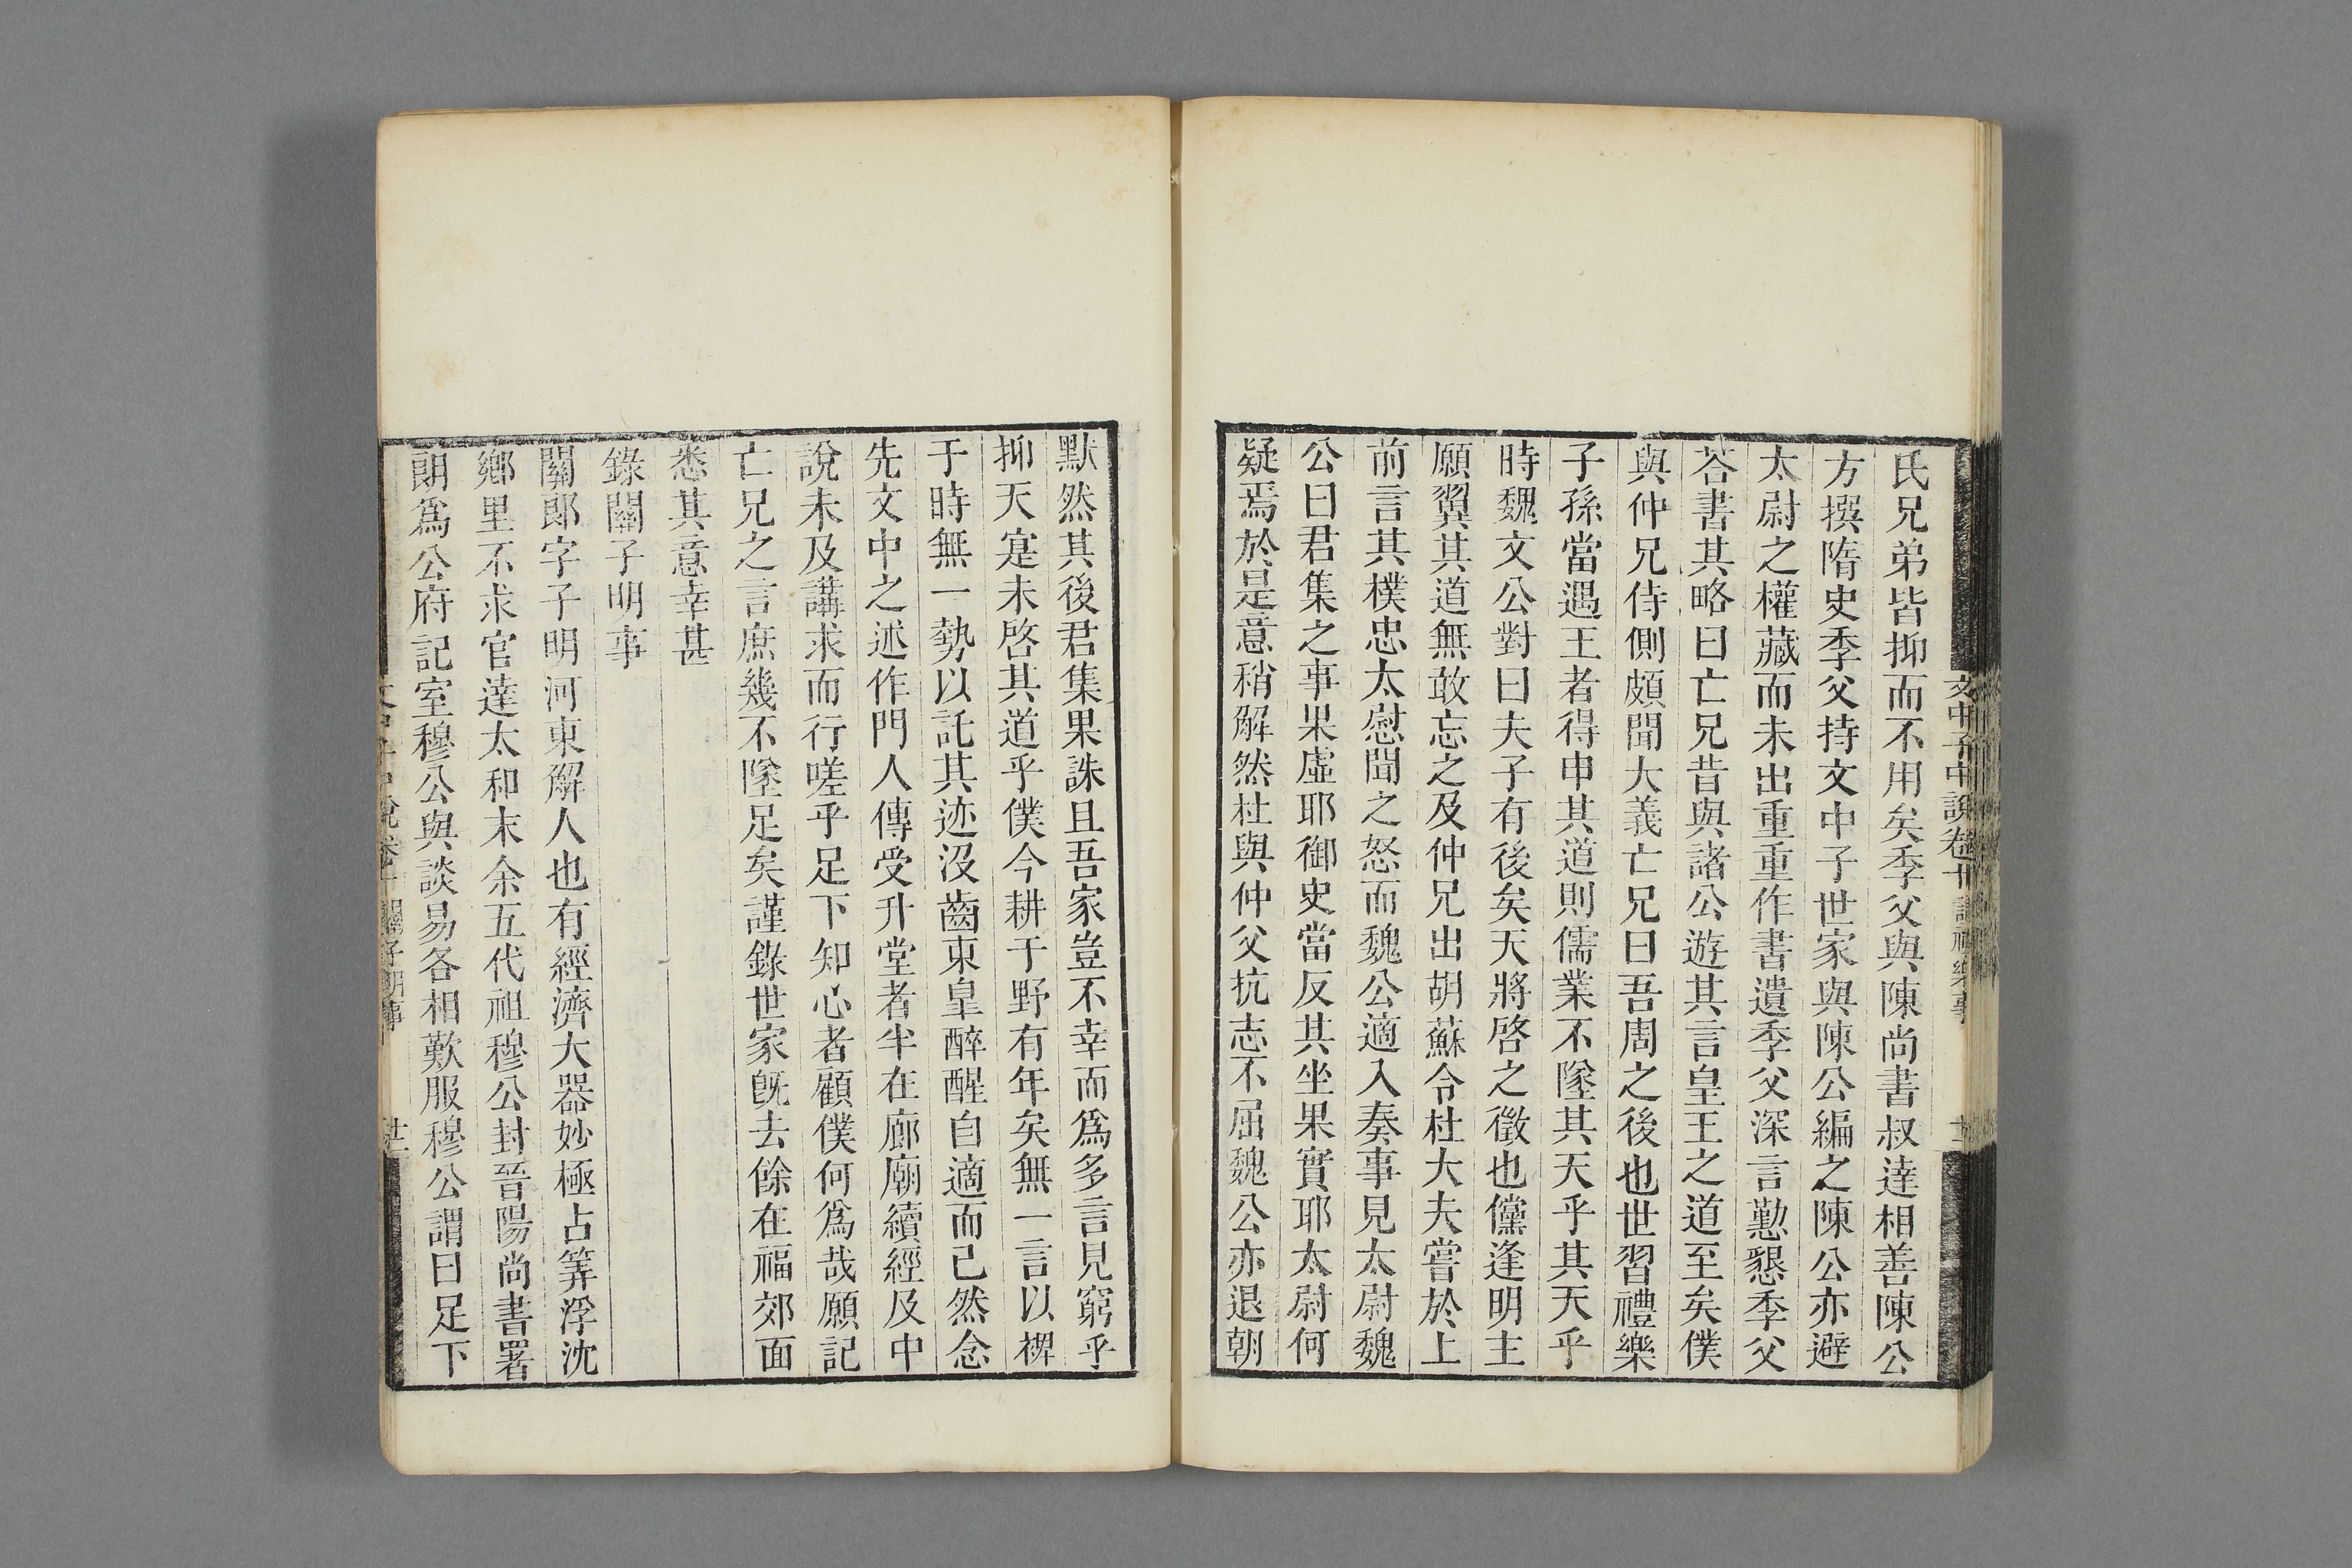 氏兄弟皆抑而不用矣季父與陳尚書叔達相善陳公
方撰隋史季父持文中子世家與陳公編之陳公亦避
太尉之權藏而未出重重作書遺季父深言勤懇季父
荅書其略曰亡兄昔與諸公遊其言皇王之道至矣僕
與仲兄侍側頗聞大義亡兄曰吾周之後也世習禮樂
子孫當遇王者得申其道則儒業不墜其天乎其天乎
時魏文公對曰夫子有後矣天將啓之徵也儻逢明主
願翼其道無敢忘之及仲兄出胡蘇令杜大夫嘗於上
前言其樸忠太慰聞之怒而魏公適入奏事見太尉魏
公曰君集之事果虛耶御史當反其坐果實耶太尉何
疑焉於是意稍解然杜與仲父抗志不屈魏公亦退朝
默然其後君集果誅且吾家豈不幸而爲多言見窮乎
抑天寔未啓其道乎僕今耕于野有年矣無一言以禆
于時無一勢以託其迹沒齒東皐醉醒自適而已然念
先文中之述作門人傳受升堂者半在廊廟續經及中
說未及講求而行嗟乎足下知心者顧僕何爲哉願記
亡兄之言庶幾不墜足矣謹錄世家旣去餘在福郊面
悉其意幸甚
錄關子明事
關郎字子明河東解人也有經濟大器妙極占筭浮沈
鄉里不求官達太和末余五代祖穆公封晉陽尚書署
朗爲公府記室穆公與談易各相歎服穆公謂曰足下
文中子中說卷十